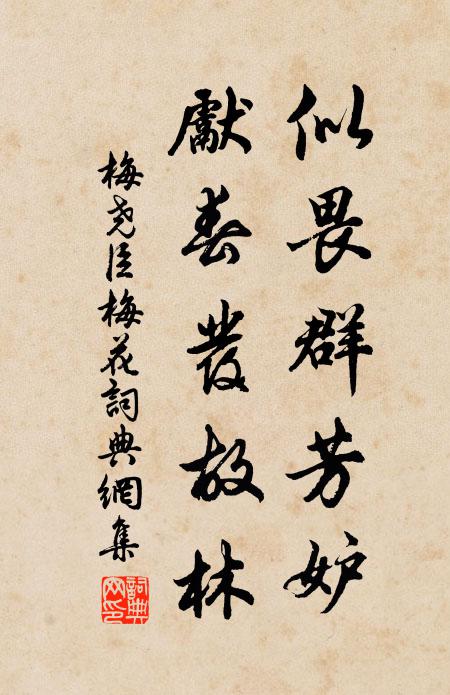 似畏群芳妒
獻春發故林
梅尧臣梅花詞典網集
詞典
网印